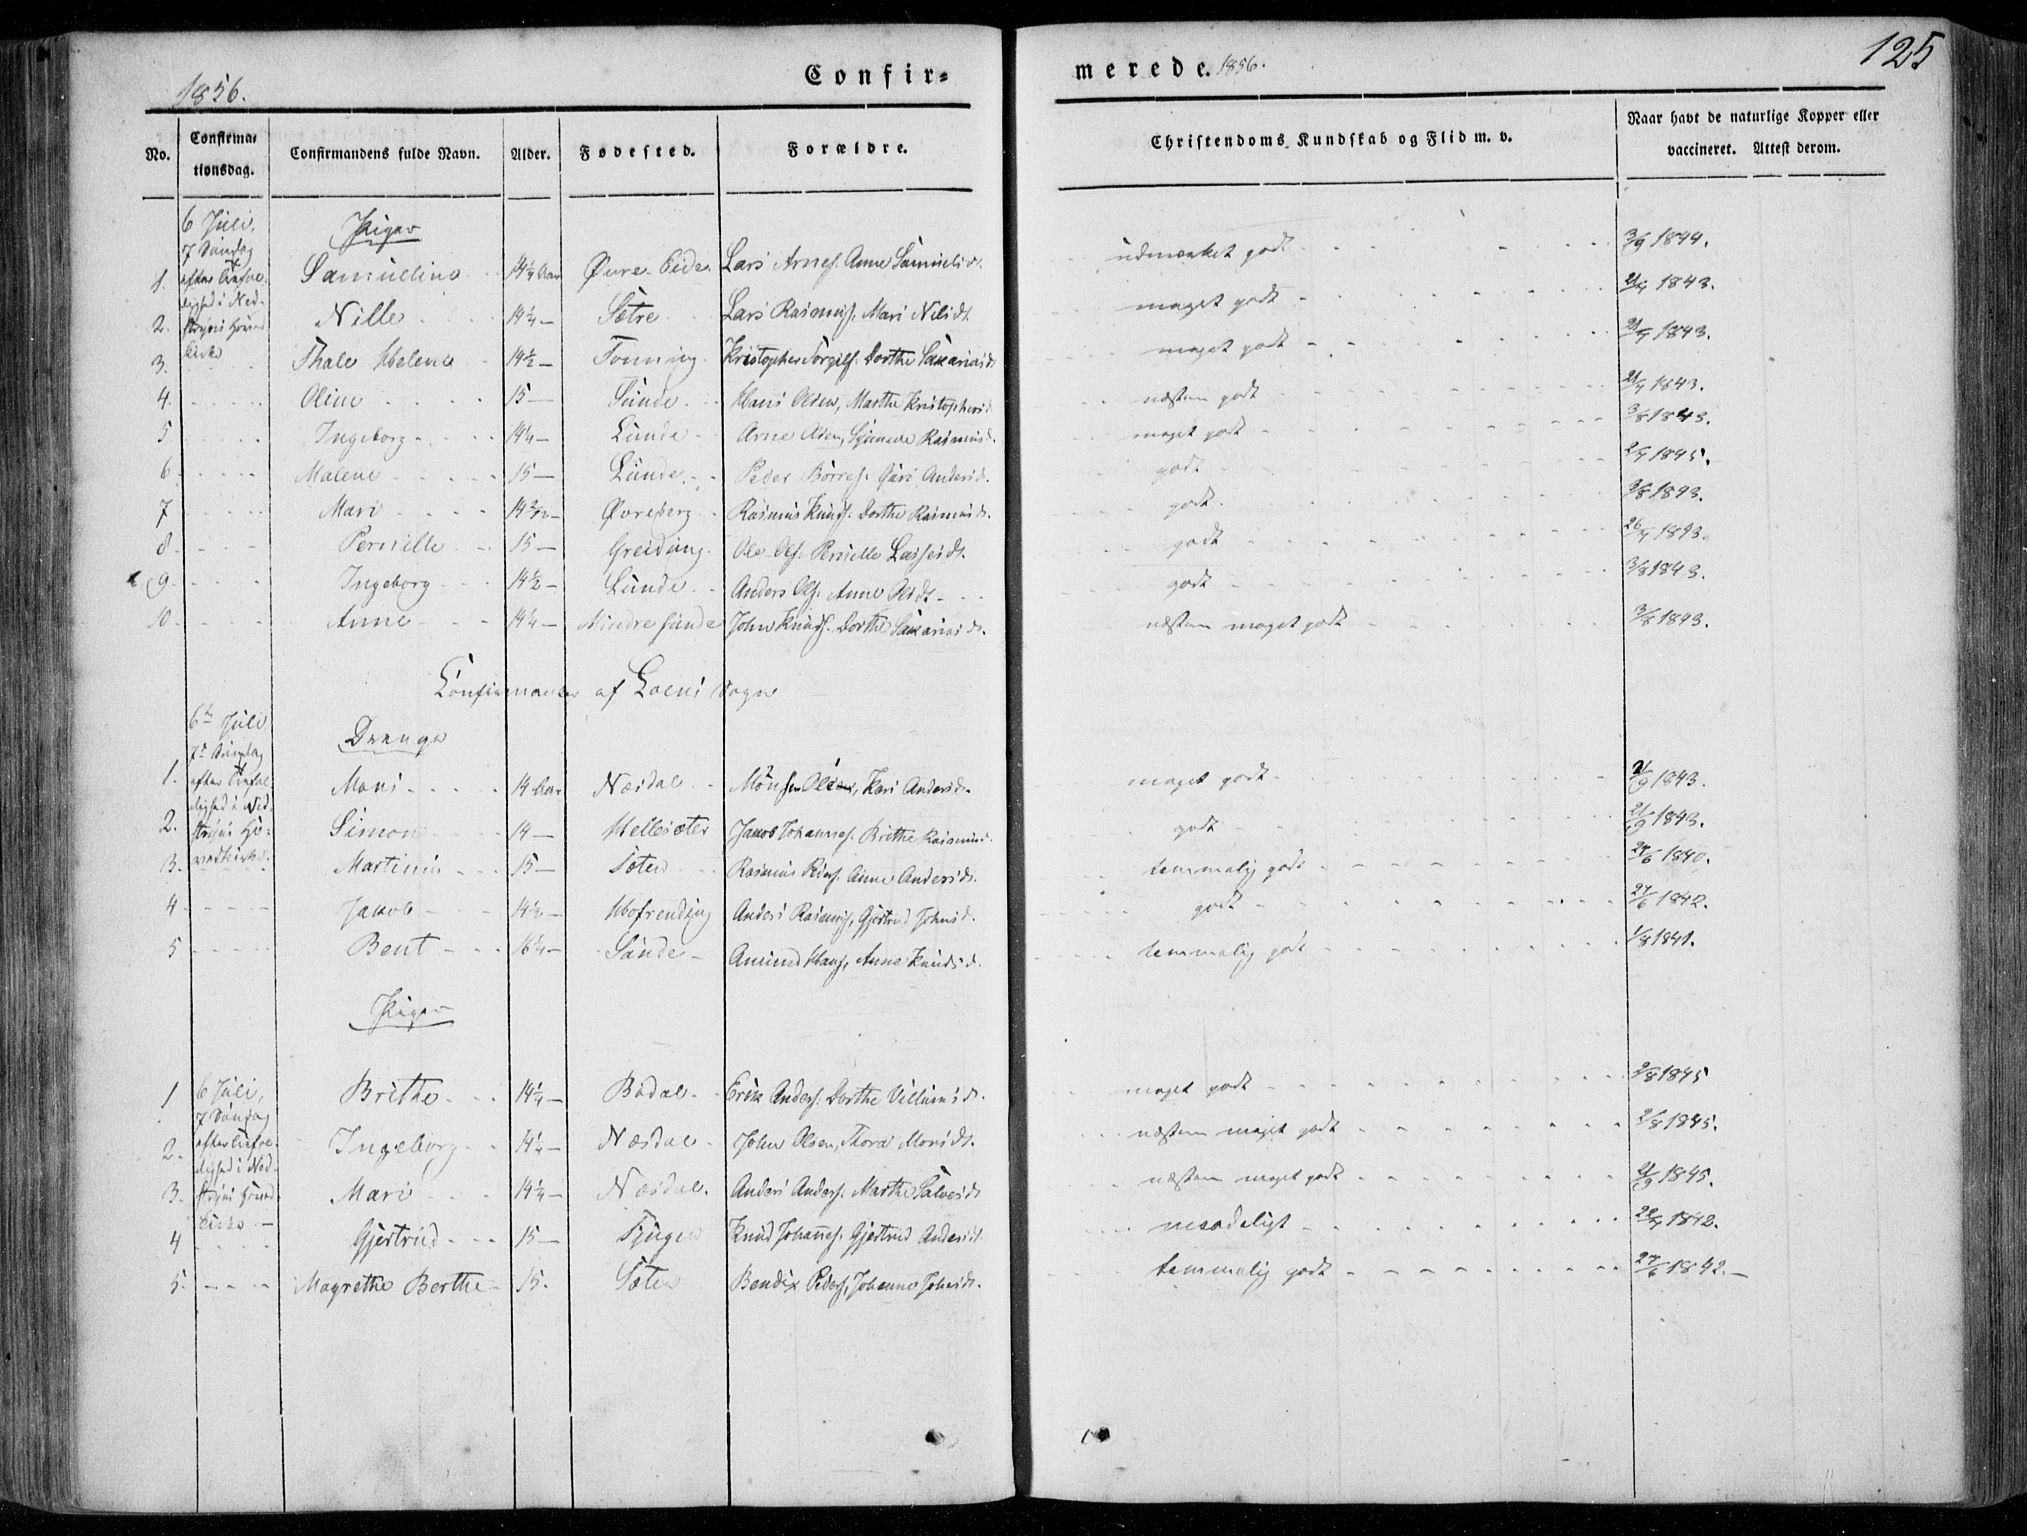 1856.
Confir=
merede. 1856.
125
No.
Confirma-
tionsdag.
Confirmandens fulde Navn.
Alder.
Fødested.
Forældre.
Christendoms Kundskab og Flid m. v.
Naar havt de naturlige Kopper eller
vaccineret. Attest derom.
6 Juli,
7 Søndag
efter Trefol-
dighed i Ned-
stryns Hoved-
kirke
Piger
1. Samueline 14 1/4 Aar Øvre Eide Lars Arnes. Anne Samuelsd. udmærket godt 3/9 1844.
2. Nille 14 1/4 Sætre Lars Rasmuss. Mari Nilsdt. meget godt 1843.
3. Thale Helene 14 1/2 Tonning Kristopher Torgils. Dorthe Sakariasdt. meget godt 1843.
4. Oline 15 Sunde Hans Olsen, Marthe Kristophersd. næsten godt 1843.
5 Ingeborg 14 1/4 Lunde Arne Olsen, Rasmusd. meget godt 3/8 1843.
6 Malene 15 Lunde Peder Børres. Guri Andersd. godt 1845.
7 Mari Øvreberg Rasmus Knuds. Dorthe Rasmusd. godt 3/8 1843.
8 Pernille 15 Greiding Ole Ols. Pernille Lassesdt. godt 1843.
9 Ingeborg 14 1/2 Lunde Anders Ols. Anne Olsdt godt 3/8 1843.
10 Anne 14 1/4 Mindre Sunde John Knuds. Dorthe Sakariasd. næsten meget godt 3/8 1843.
Confirmanter af Loens Sogn
6te Juli
7de Søndag
efter Trefol-
dighed i Ned-
stryns Ho-
vedkirke.
Drenge
1. Mons 14 Aar Næsdal Møns Olsen, Kari Andersd. meget godt 21/9 1843.
2. Simon 14 Hellesæter Jakob Johannes. Brithe Rasmusd. godt 21/9 1843.
3. Martinus 15 Sæten Rasmus Peders. Anne Andersdt. temmelig godt 1840.
4 Jakob 14 1/2 Hofrending Anders Rasmuss, Gjertrud Johnsd. godt 27/6 1842.
5 Bent 16 1/4 Sande Amund Hans, Anne Knudsd. temmelig godt 1/8 1841.
Piger
6 Juli,
7 Søndag
efter Trefol-
dighed i Ned-
stryns Hoved-
kirke
1 Brithe 14 1/4 Bødal Erik Anders. Dorthe Villumsdt. meget godt 2/8 1845
2. Ingeborg 14 1/4 Næsdal John Olsen, Thora Monsdt. næsten meget godt 2/8 1845.
3. Mari 14 1/4 Næsdal. Anders Anders. Marthe Salvesdt næsten meget godt 21/9 1845.
4 Gjertrud 15 Tjugen Knud Johannes. Gjertrud Andersdt. maadeligt 1842.
5. Magrethe Berthe 15. Sæten Bendix Peders, Johanne Johnsdt. temmelig godt 27/6 1842.